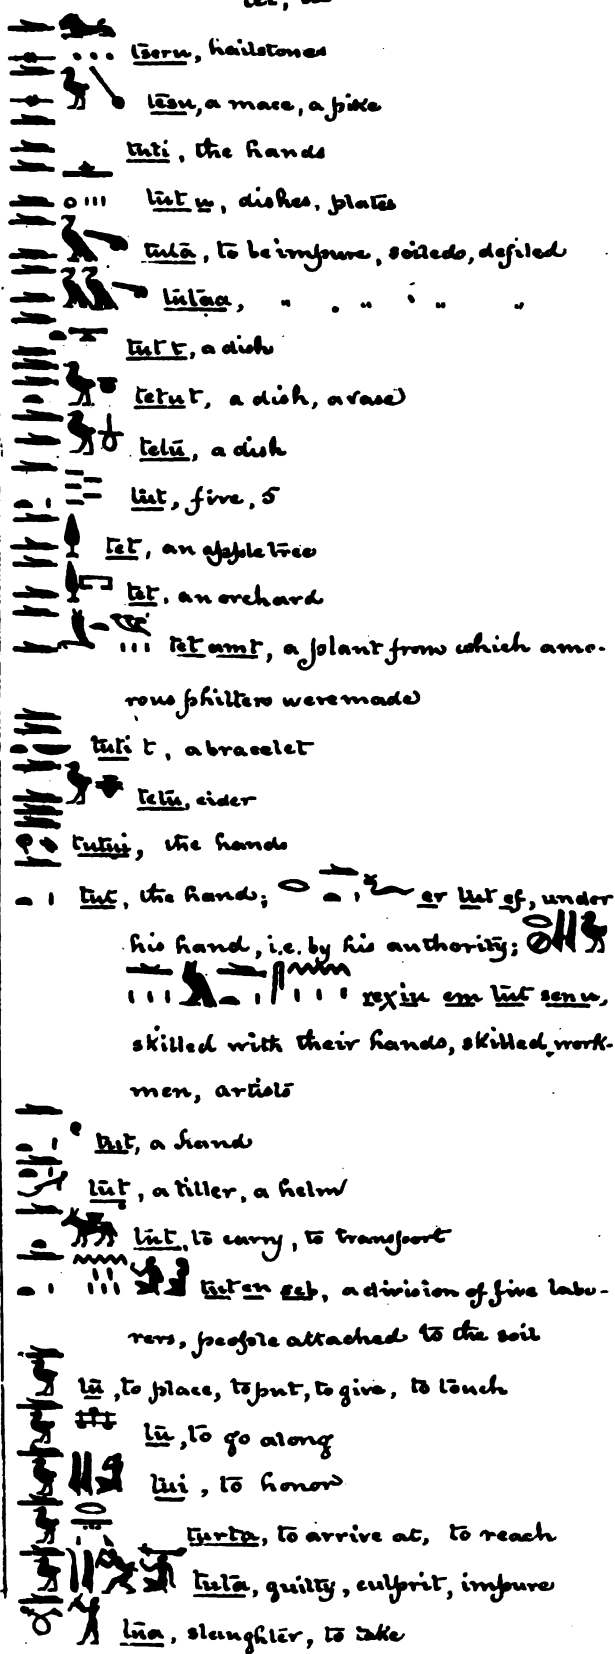 tseru, hailstones
tesu, a mace, a pike
tuti, the hands
tut u, dishes, plates
tutā, to be impure, soiled, defiled
tutāa, " " " "
tut t, a dish
tetu t, a dish, a vase
tetū, a dish
tut, five, 5
tet, an apple tree
tet, an orchard
tet amt, a plant from which amo-
rous philters were made
tuti t, a bracelet
tetu, cider
tutui, the hands
tut, the hand; er tut ef, under
his hand, i.e. by his authority;
rexiu em tut senu,
skilled with their hands, skilled work-
men, artists
tut, a hand
tūt, a tiller, a helm
tūt, to carry, to transport
tut en sep, a division of five labo-
rers, people attached to the soil
tū, to place, to put, to give, to touch
tū, to go along
tui, to honor
turta, to arrive at, to reach
tutā, guilty, culprit, impure
tūa, slaughter, to take